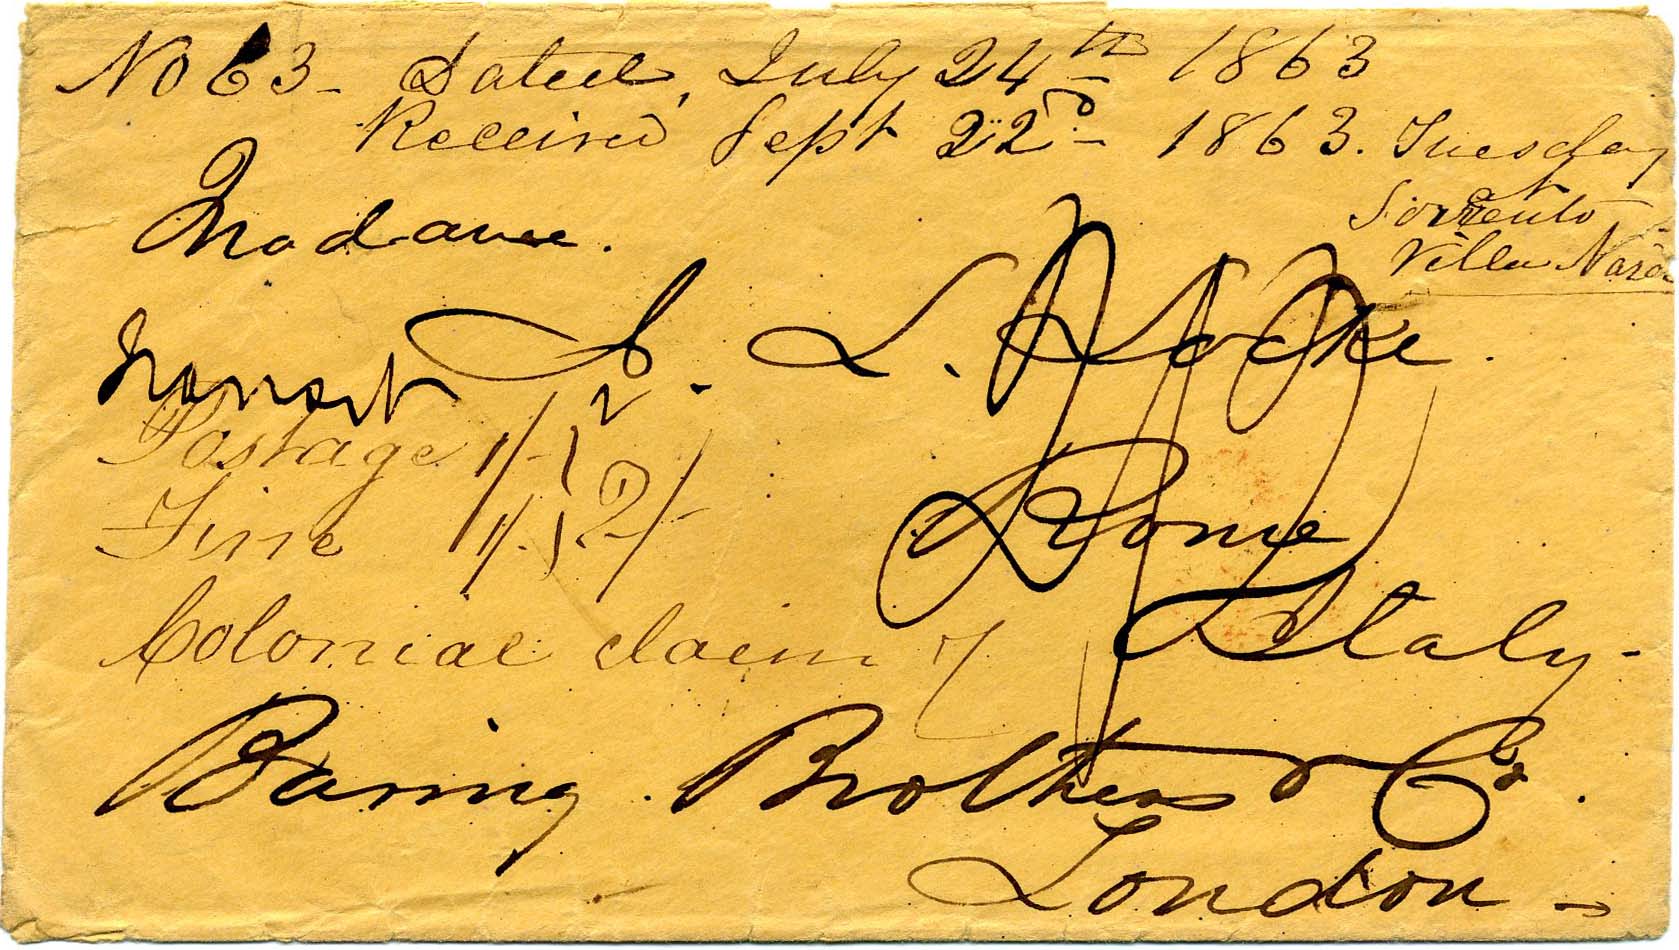 No 63 - Dated, July 24th 1863
Received Sept 22d - 1863. Tuesday
at
Sorrento
Villa Nardi
Madame.
S. L. Locke.
Postage 1/-
Fine 1/- 2/-
Rome
Italy-
Colonial claim
Baring Brothers & Co.
London -